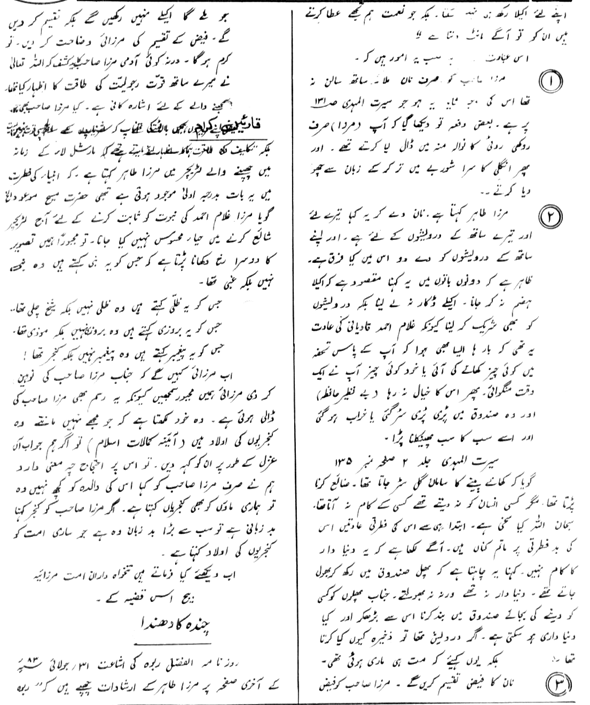 اپنے لئے اکیلا رکھ ہی نہیں سکتا۔ بلکہ جو نعمت ہم تجھے عطا کرتے
ہیں ان کو تو آگے بانٹ دیتا ہے۔
اس عبارت سب یہ امور ہیں کہ۔
۱ مرزا صاحب کو صرف نان ملا ساتھ سالن نہ
تھا اس کی وجہ شاید یہ ہو جو سیرت المہدی صہ ۱۳۱
پر ہے۔ بعض دفعہ تو دیکھا گیا کہ آپ (مرزا) صرف
روکھی روٹی کا نوالہ منہ میں ڈال لیا کرتے تھے۔ اور
پھر انگلی کا سرا شوربے میں تر کر کے زبان سے چھو
دیا کرتے۔
۲ مرزا طاہر کہتا ہے۔ نان دے کر یہ کہا تیرے لئے
اور تیرے ساتھ کے درویشوں کے لئے ہے۔ اور اپنے
ساتھ کے درویشوں کو دے دو اس میں کیا فرق ہے۔
ظاہر ہے کہ دونوں باتوں میں یہ کہنا مقصود ہے کہ اکیلا
ہضم نہ کر جانا۔ اکیلے ڈکار نہ لے لینا بلکہ درویشوں
کو بھی شریک کر لینا کیونکہ غلام احمد قادیانی کی عادت
یہ تھی کہ بار ہا ایسا بھی ہوا کہ آپ کے پاس تحفہ
میں کوئی چیز کھانے کی آئی یا خود کوئی چیز آپ نے ایک
وقت منگوائی۔ پھر اس کا خیال نہ رہا (بے نظیر حافظہ)
اور وہ صندوق میں پڑی پڑی سڑ گئی یا خراب ہو گئی
اور اسے سب کا سب پھینکنا پڑا۔
سیرت المہدی جلد ۲ صفحہ نمبر ۱۳۵
گویا کہ کھانے پینے کا سامان گل سڑ جاتا تھا۔ ضائع کرنا
پڑتا تھا۔ مگر کسی انسان کو نہ دیتے تھے کسی کے کام نہ آتا تھا۔
سبحان اللہ کیا سخی ہے۔ ابتدا ہی سے اس کی فطرتی عادتیں اس
کی بد فطرتی پر ماتم کناں ہیں۔ آگے لکھا ہے کہ یہ دنیا دار
کا کام نہیں۔ کہنا یہ چاہتا ہے کہ پھل صندوق میں رکھ کر بھول
جاتے تھے۔ دنیا دار نہ تھے ورنہ نہ بھولتے۔ جناب پھلوں کو کسی
کو دینے کی بجائے صندوق میں بند کرنا اس سے بڑھ کر اور کیا
دنیا داری ہو سکتی ہے۔ اگر درویش تھا تو ذخیرہ کیوں کیا کرتا
تھا۔ بلکہ یوں کہیئے کہ مت ہی ماری ہوئی تھی۔
۳ نان کا فیض تقسیم کریں گے۔ مرزا صاحب کو فیض
جو ملے گا اکیلے نہیں رکھیں گے بلکہ تقسیم کر دیں
گے۔ فیض کے تقسیم کی مرزائی وضاحت کر دیں۔ تو
کرم ہو گا۔ ورنہ کوئی آدمی مرزا صاحب کا یہ کشف کہ اللہ تعالی
نے میرے ساتھ قوت رجولیت کی طاقت کا اظہار کیا تھا۔
سمجھنے والے کے لئے اشارہ کافی ہے۔ کیا مرزا صاحب
قارئین کرام
بلکہ کہ مارشل لاء کے زمانہ
میں چھپنے والے لٹریچر میں مرزا طاہر کہتا ہے۔ کہ انبیاء کی فطرت
میں یہ بات بدرجہ اولی موجود ہوتی ہے تبھی حضرت مسیح موعود
گویا مرزا غلام احمد کی نبوت کو ثابت کرنے کے لئے آج لٹریچر
شائع کرنے میں حیاء محسوس نہیں کیا جاتا۔ تو مجبوراً ہمیں تصویر
کا دوسرا رخ دکھانا پڑتا ہے کہ جس کو یہ نبی کہتے ہیں وہ نبی
نہیں بلکہ غبی تھا۔
جس کو یہ ظلی کہتے ہیں وہ ظلی نہیں بلکہ شیخ چلی تھا۔
جس کو یہ بروزی کہتے ہیں وہ بروزی نہیں بلکہ موذی تھا۔
جس کو یہ پیغمبر کہتے ہیں وہ پیغمبر نہیں بلکہ کنجر تھا!
اب مرزائی کہیں گے کہ جناب مرزا صاحب کی توہین
کر دی مرزائی ہمیں مجبور سمجھیں کیونکہ یہ رسم بھی مرزا صاحب کی
ڈالی ہوئی ہے۔ وہ خود لکھتا ہے کہ جو مجھے نہیں مانتے وہ
کنجریوں کی اولاد ہیں (آئینہ کمالات اسلام) تو اگر ہم جواب آں
غزل کے طور پر ان کو کہہ دیں۔ تو اس پر احتجاج چہ معنی دارد
ہم نے صرف مرزا صاحب کو کہا اس کی والدہ کو کچھ نہیں وہ
تو ہماری ماؤں کو بھی کنجریاں کہتا ہے۔ اگر مرزا صاحب کو کنجر کہنا
بد زبانی ہے تو سب سے بڑا بد زبان وہ ہے جو ساری امت کو
کنجریوں کی اولاد کہتا ہے۔
اب دیکھئے کیا فرماتے ہیں تنخواہ داران امت مرزائیہ
بیچ اس قضیہ کے۔
چندہ کا دھندا
روزنامہ الفضل ربوہ کی اشاعت ۳۱ / جولائی ۸۳ء
کے آخری صفحہ پر مرزا طاہر کے ارشادات چھپے ہیں کہ "ربوہ